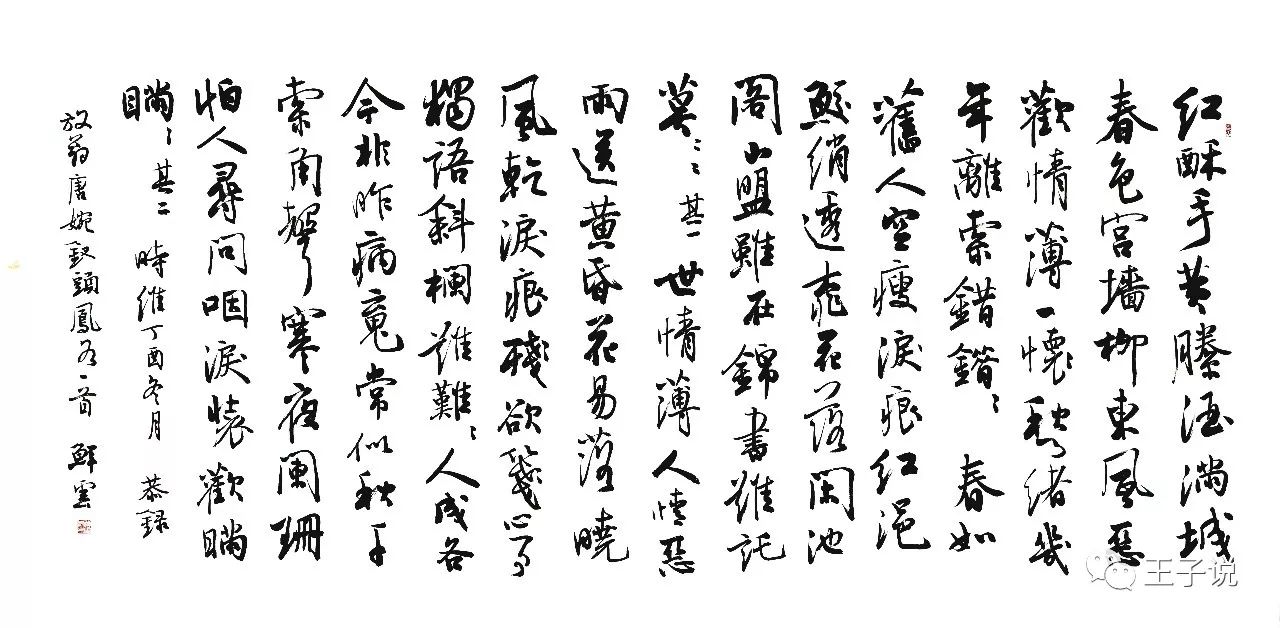 红酥手黄縢酒满城
春色宫墙柳東風惡
歡情薄一懷愁緒幾
年離索錯錯々春如
舊人空瘦淚痕红浥
鮫綃透桃花落閑池
閣山盟雖在錦書難託
莫々々其一世情薄人情惡
雨送黄昏花易落曉
風乾淚痕殘欲箋心事
獨語斜欄難難々人成各
今非昨病魂常似秋千
索角聲寒夜闌珊
怕人尋問咽淚裝歡瞞
瞞々其二時維丁酉冬月恭録
放翁唐婉釵頭鳳各一首鮮雲
王子说